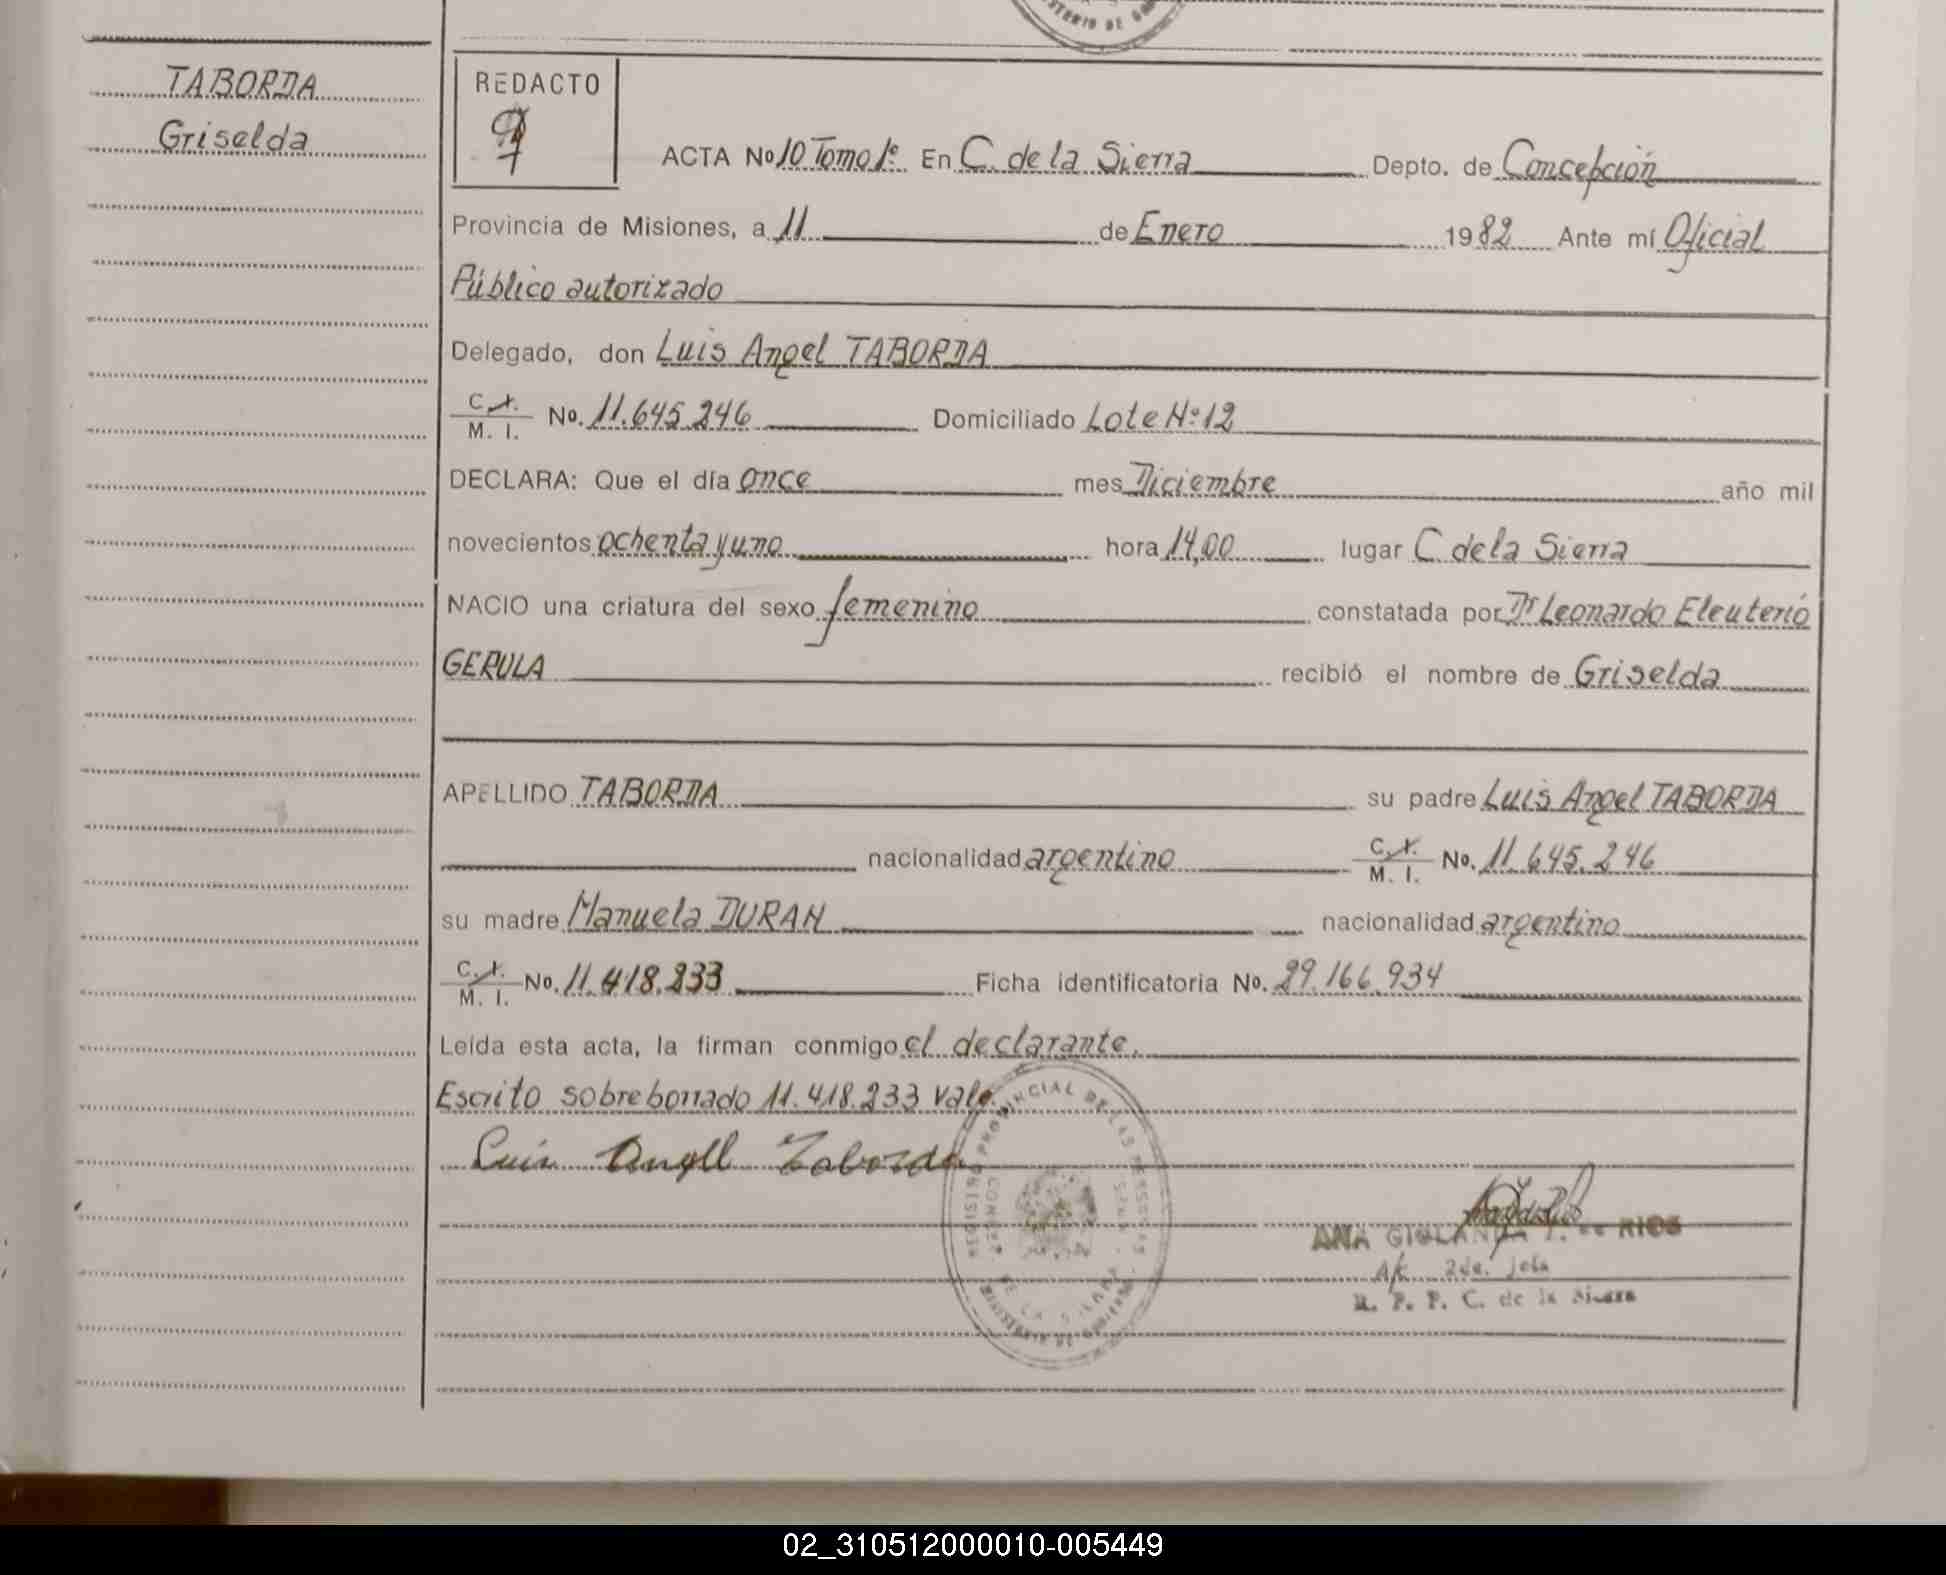 TABORDA
Griselda
REDACTO
ACTA No 10 Tomo 1º En C. de la Sierra Depto. de Concepción
Provincia de Misiones, a 11 de Enero 1982 Ante mí Oficial
Público autorizado
Delegado, don Luis Angel TABORDA
C. I. M. I. No. 11.645.246 Domiciliado Lote Nº 12
DECLARA: Que el día once mes Diciembre año mil
novecientos ochenta y uno hora 14,00 lugar C. de la Sierra
NACIO una criatura del sexo femenino constatada por Dr Leonardo Eleuterio
GERULA recibió el nombre de Griselda
APELLIDO TABORDA su padre Luis Angel TABORDA
nacionalidad argentino C. I. M. I. No. 11.645.246
su madre Manuela DURAN nacionalidad argentino
C. I. M. I. No. 11.418.233 Ficha identificatoria No. 29.166.934
Leída esta acta, la firman conmigo el declarante.
Escrito sobreborrado 11.418.233 vale.
Luis Angell Taborda
REGISTRO PROVINCIAL DE LAS PERSONAS
ANA RIOS
2da. Jefa
R. P. P. C. de la Sierra
02_310512000010-005449